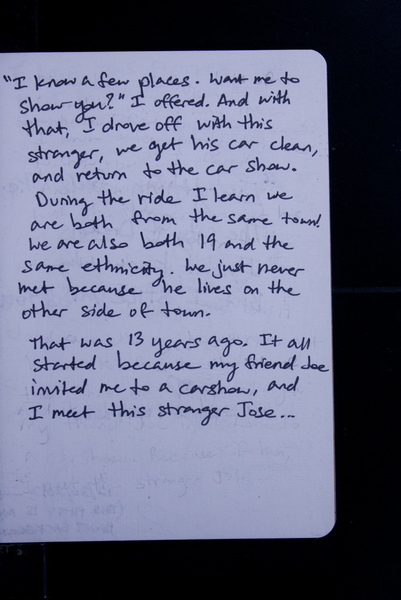 "I know a few places. Want me to
show you?" I offered. And with
that, I drove off with this
stranger, we get his car clean,
and return to the car show.
During the ride I learn we
are both from the same town!
We are also both 19 and the
same ethnicity. We just never
met because he lives on the
other side of town.
That was 13 years ago. It all
started because my friend Joe
invited me to a carshow, and
I meet this stranger Jose...